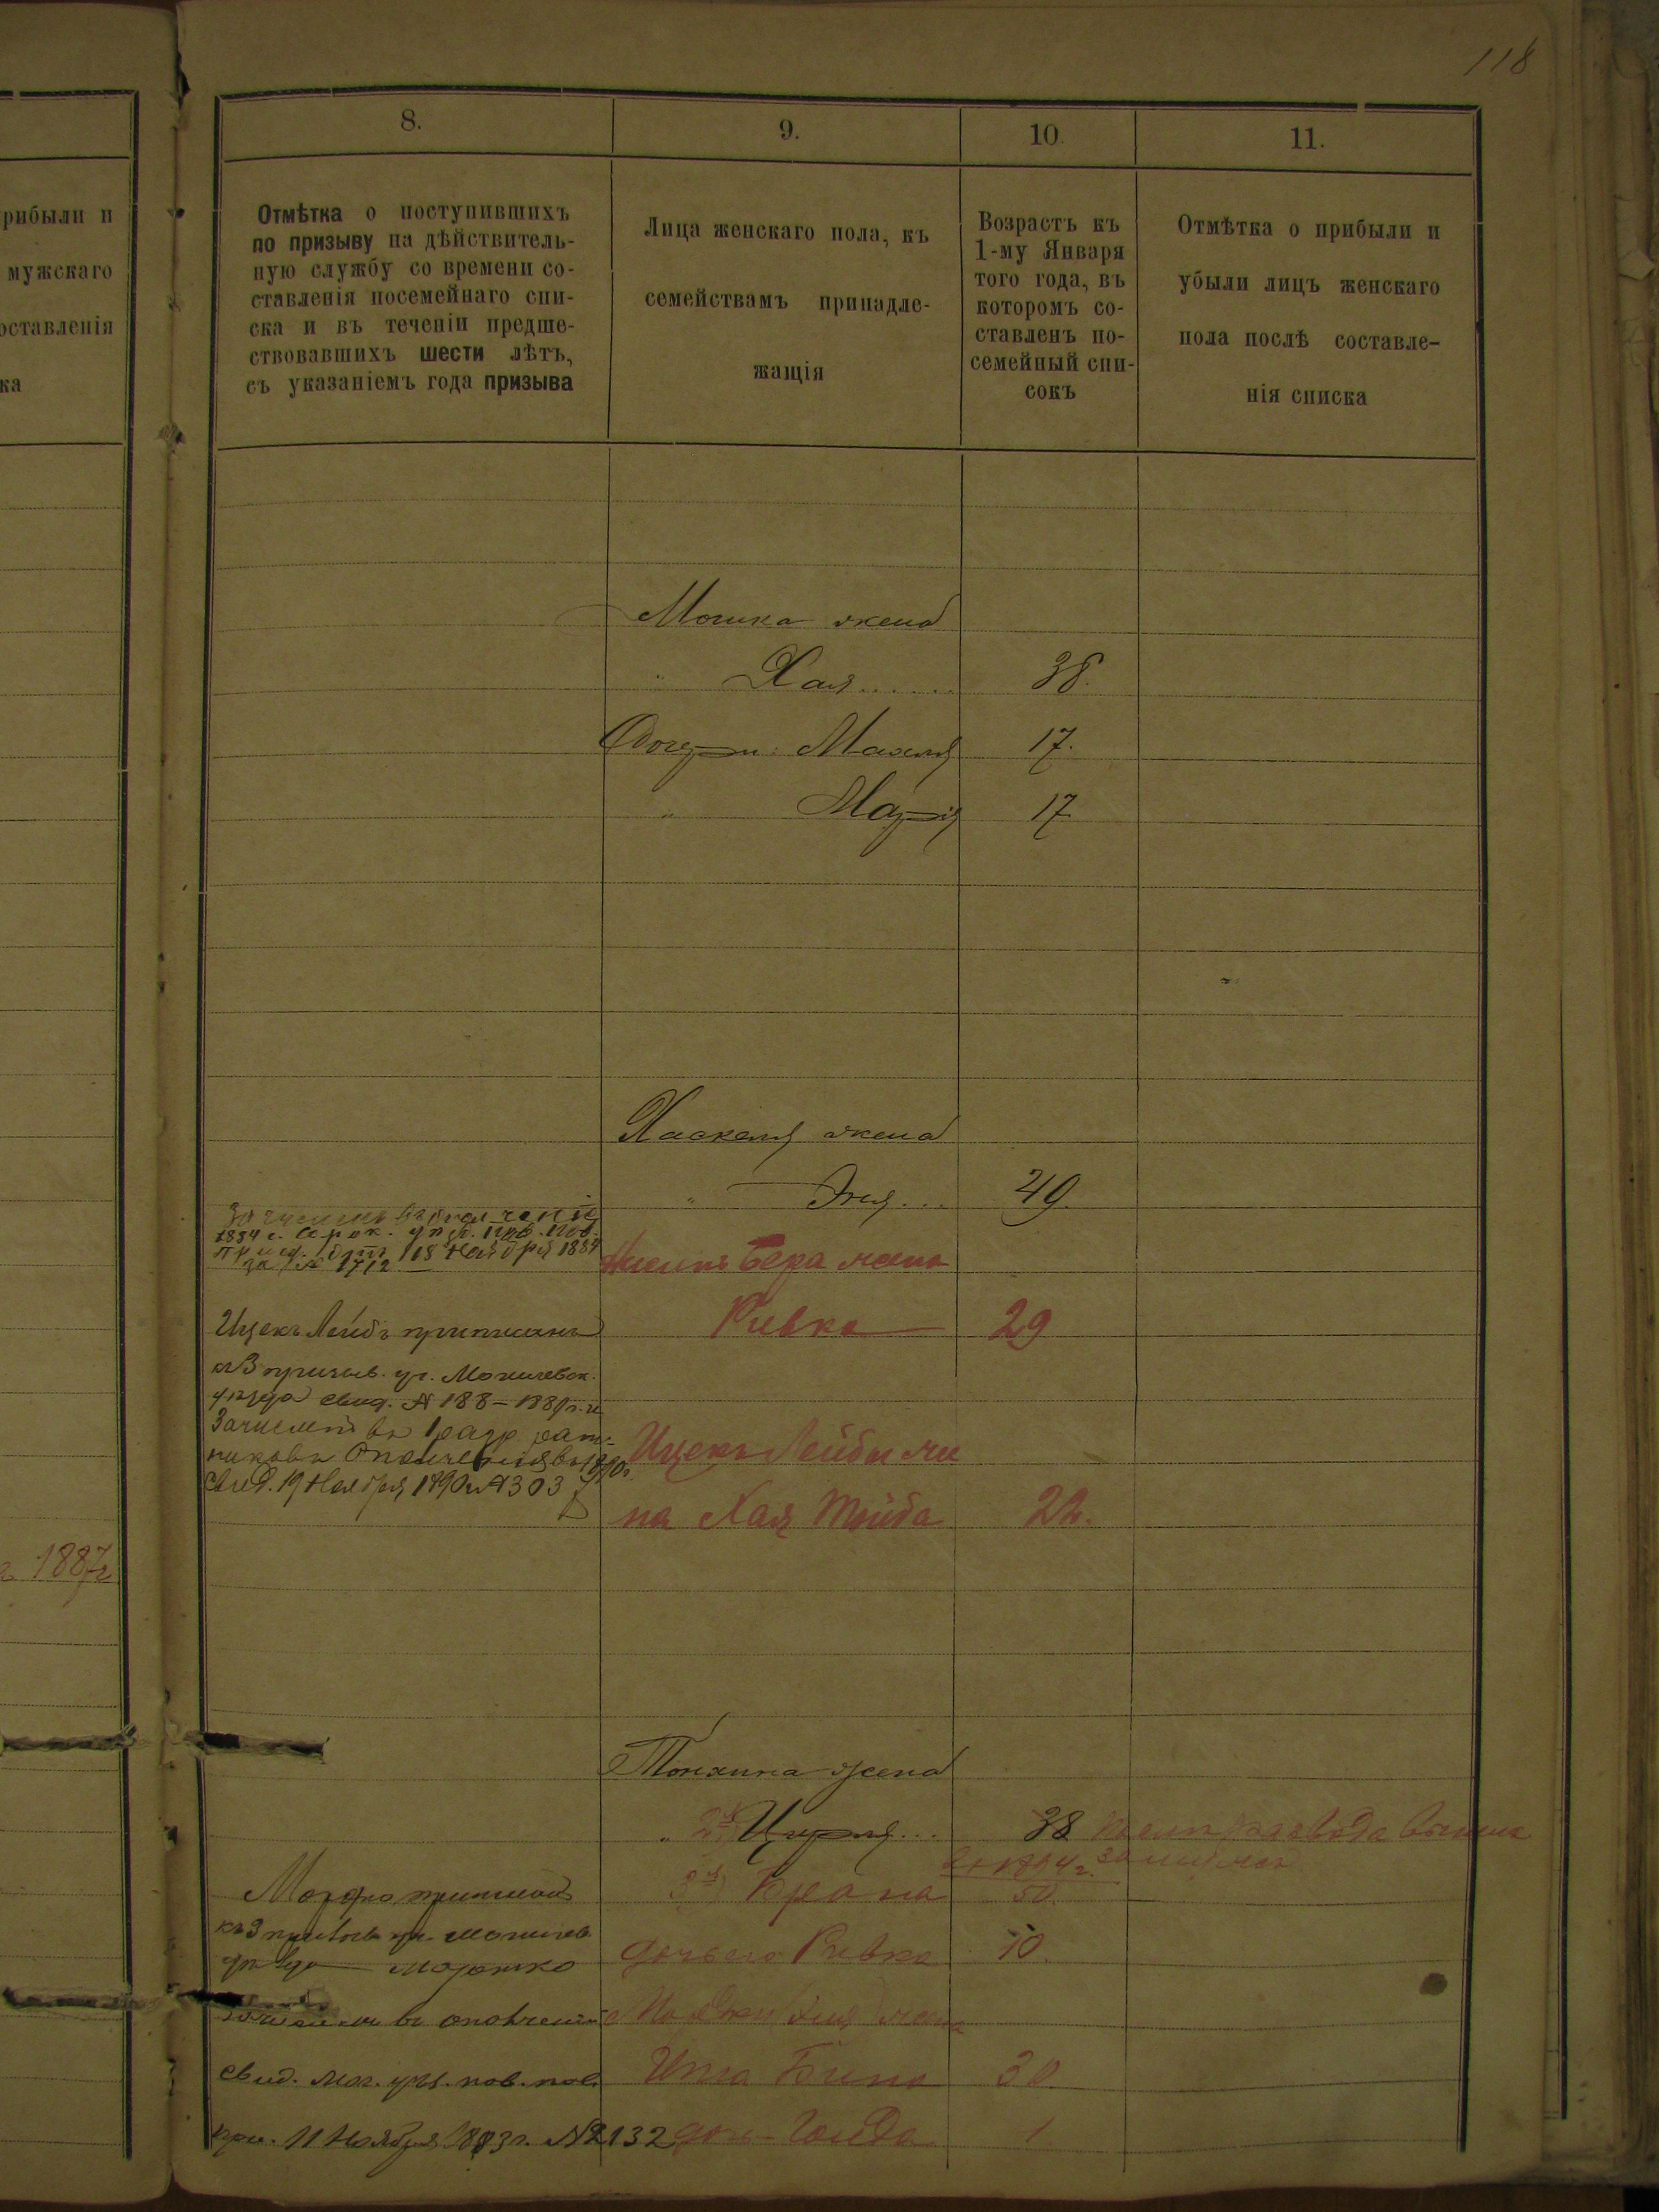 118
рибыли и
мужскаго
оставленія
ка
1887г
8.
9.
10.
11.
Отмѣтка о поступившихъ
по призыву на дѣйствитель-
ную службу со времени со-
ставленія посемейнаго спи-
ска и въ теченіи предше-
ствовавшихъ шести лѣтъ,
съ указаніемъ года призыва
Лица женскаго пола, къ
семействамъ принадле-
жащія
Возрастъ къ
1-му Января
того года, въ
которомъ со-
ставленъ по-
семейный спи-
сокъ
Отмѣтка о прибыли и
убыли лицъ женскаго
пола послѣ составле-
нія списка
Мошка жена
" Хая...... 38.
Дочери: Махля 17.
" Марія 17
Хаскеля жена
" Эня... 49.
1884 г.
18 Ноября 1884
за № 1712
Бера жена
Ривка 29
Ицекъ Лейбъ приписанъ
къ 3 призыв. уч. Могилевск.
уѣзда свид. № 188 - 1889 г. и
Зачисленъ въ 1 разр. рат-
никовъ Ополченія въ 1890г.
Свид. 19 Ноября 1890 г. № 303
Ицекъ Лейбы же
на Хая Тойба 22.
жена
" Цирля... 38 развода
1894 г.
Брана 50.
къ 3 призыв. уч. Могилев.
уѣзда
дочь его Ривка 10.
въ ополченіе
жена
свид. Мог. уѣз. пов.
Бина 30.
при. 11 Ноября 1883 г. № 2132
дочь Голда 1